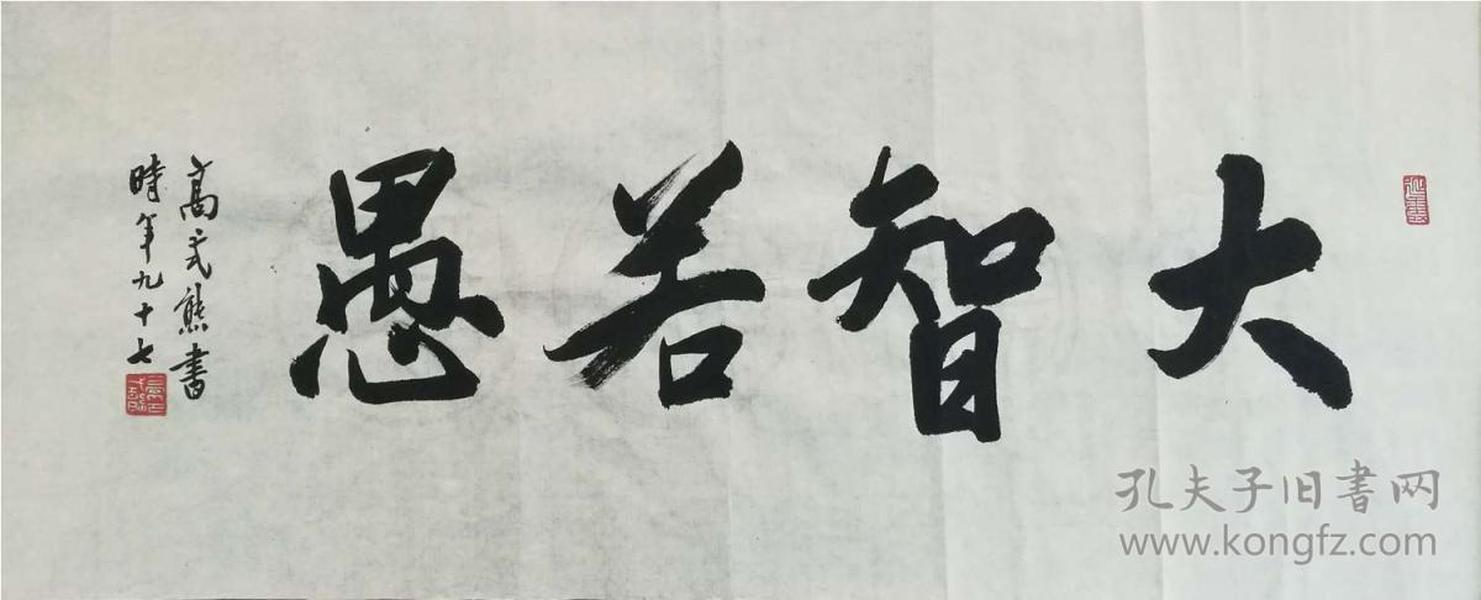 大智若愚
高式熊書
時年九十七
孔夫子旧书网
www.kongfz.com